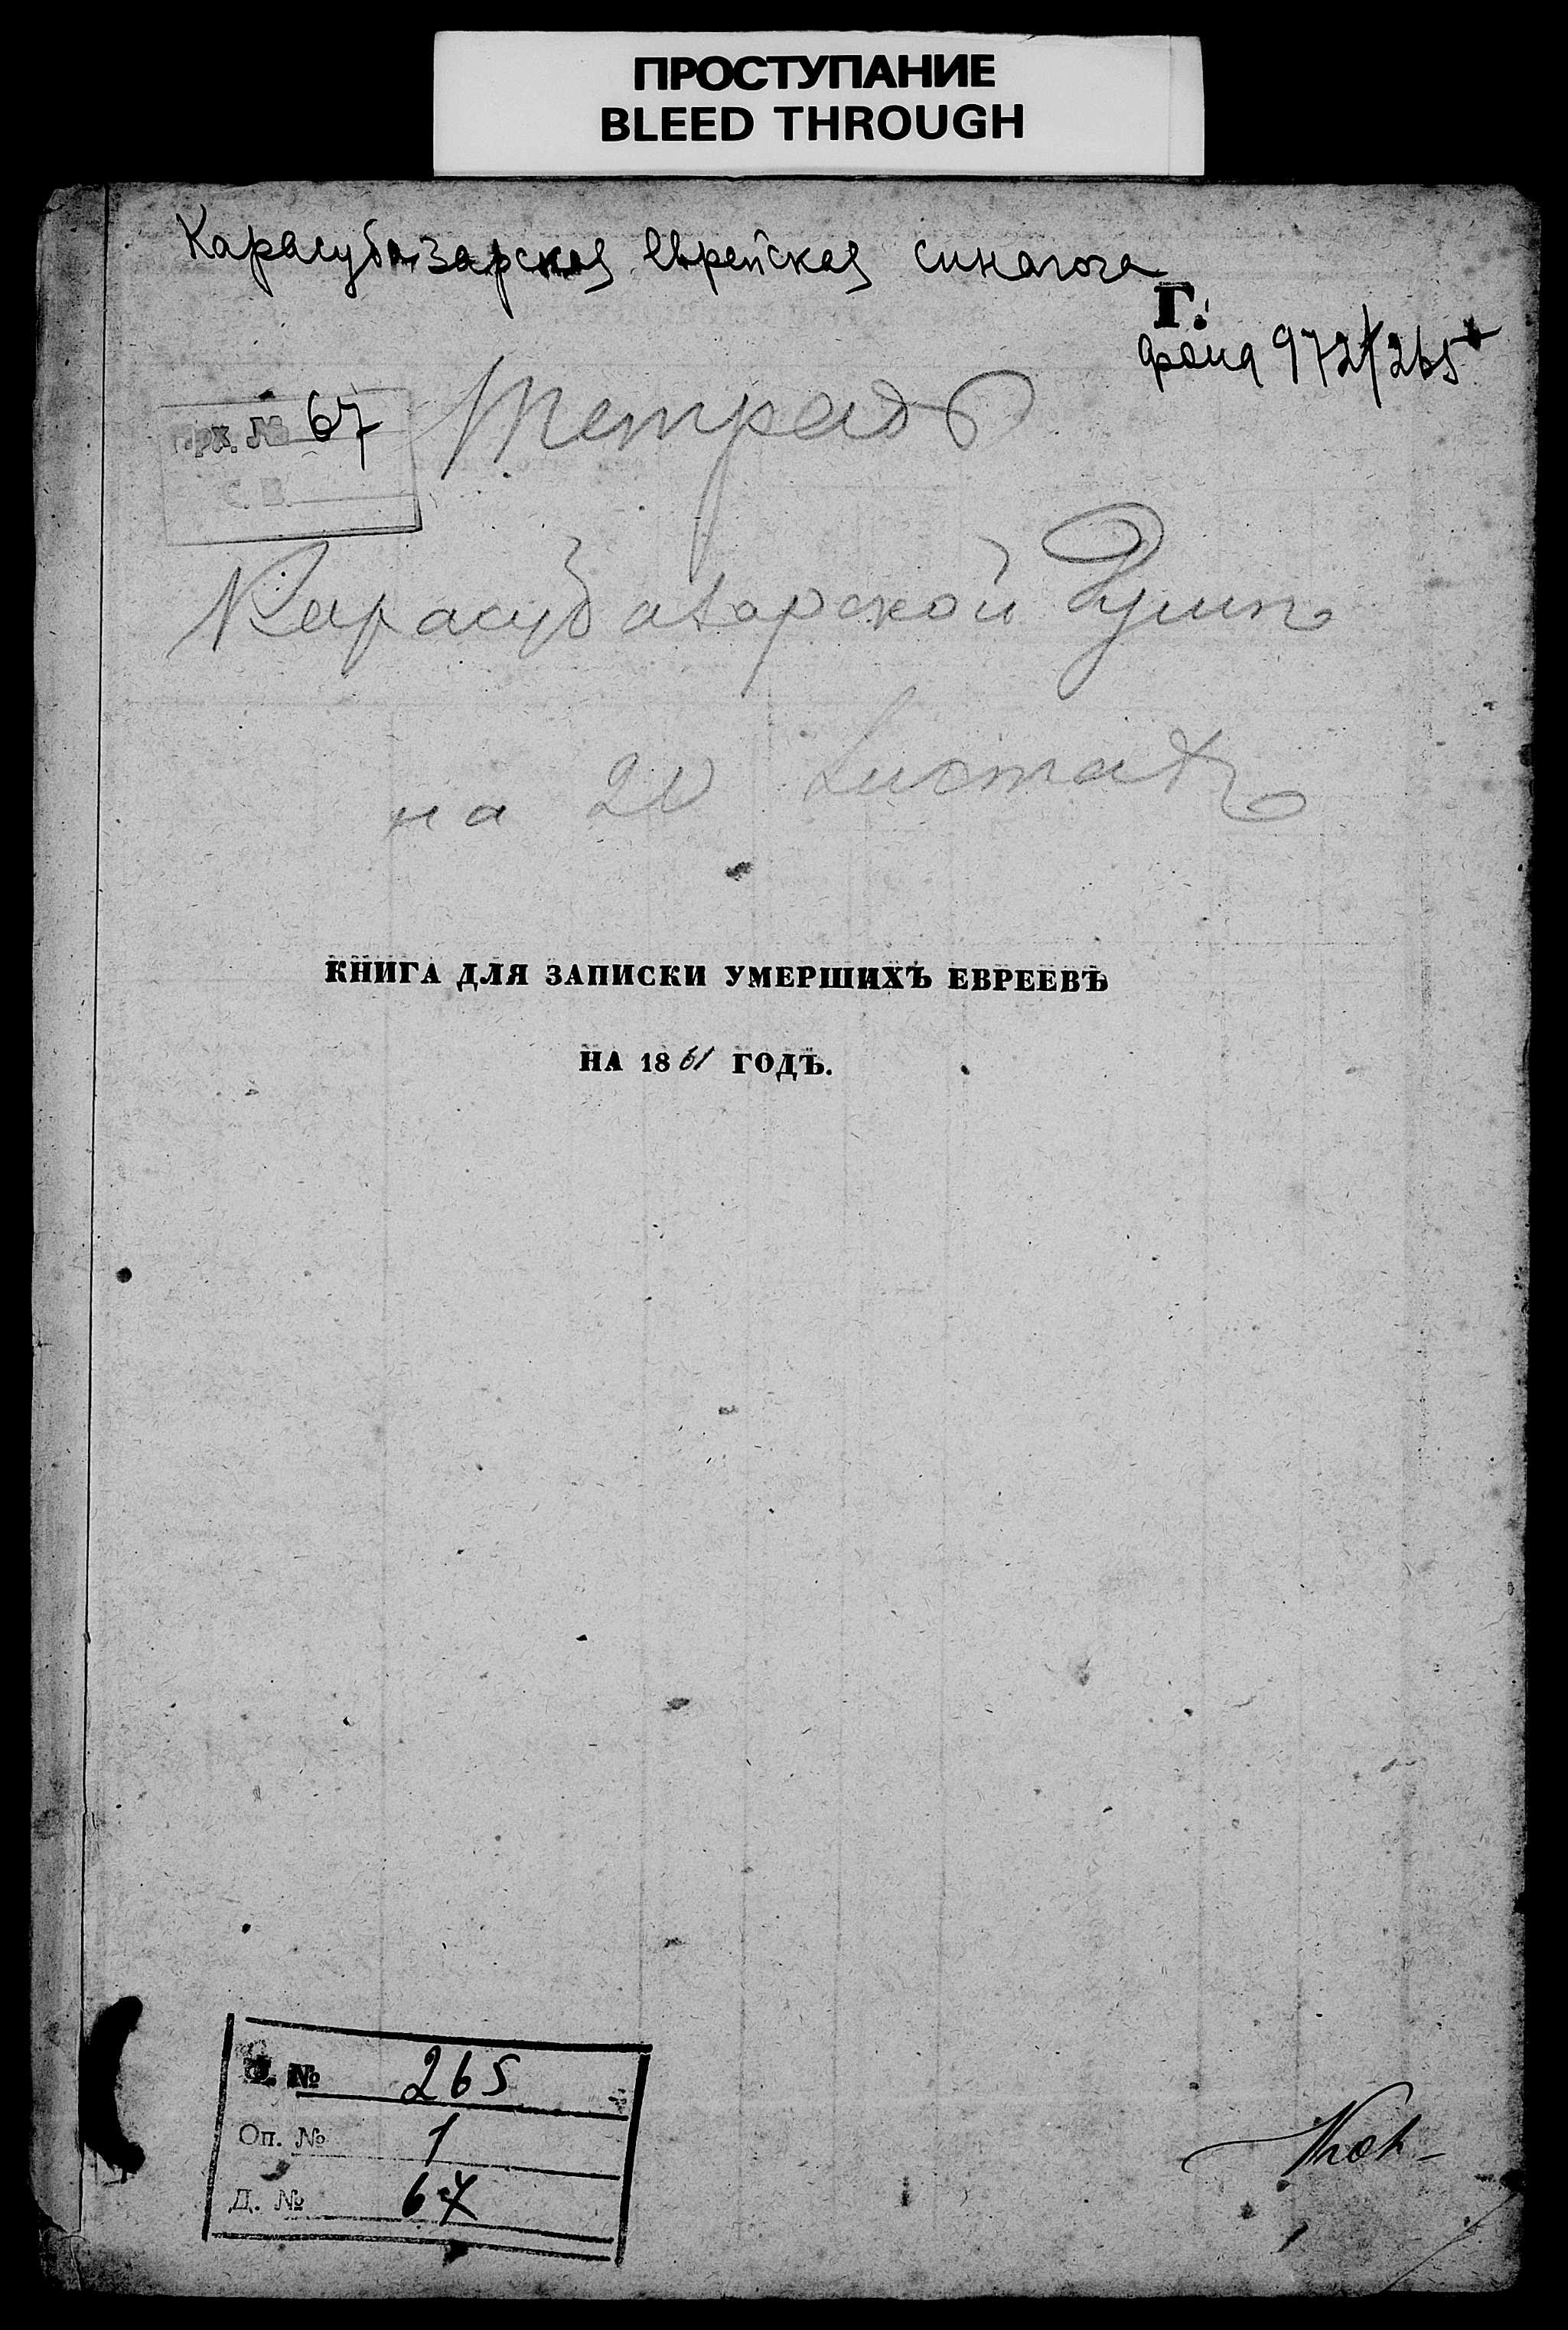 ПРОСТУПАНИЕ
BLEED THROUGH
Карасубазарская еврейская синагога
Г.
фонд 972/265
Арх. № 67
С. В.
Тетрадь
Карасубазарской Думы
на 20 листах
КНИГА ДЛЯ ЗАПИСКИ УМЕРШИХЪ ЕВРЕЕВЪ
НА 1861 ГОДЪ.
Ф. № 265
Оп. № 1
Д. № 67